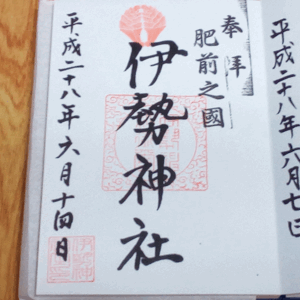 奉拝
肥前之國
伊勢神社
平成二十八年六月十四日
平成二十八年六月七日